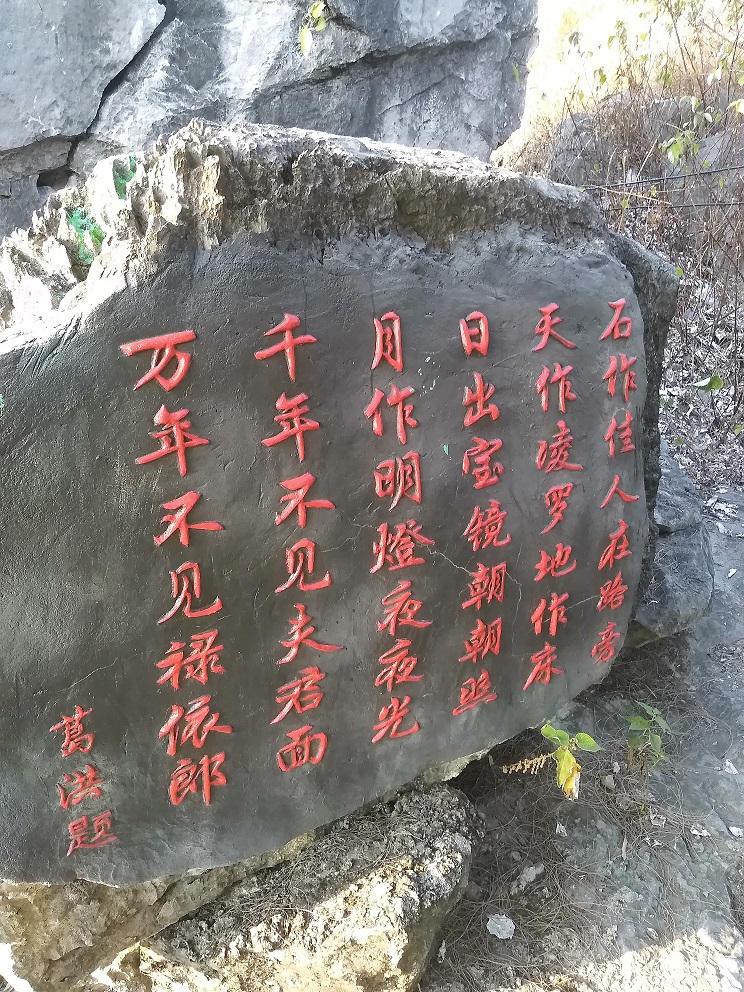 石作佳人在路旁
天作凌罗地作床
日出宝镜朝朝照
月作明燈夜夜光
千年不见夫君面
万年不见禄依郎
葛洪题